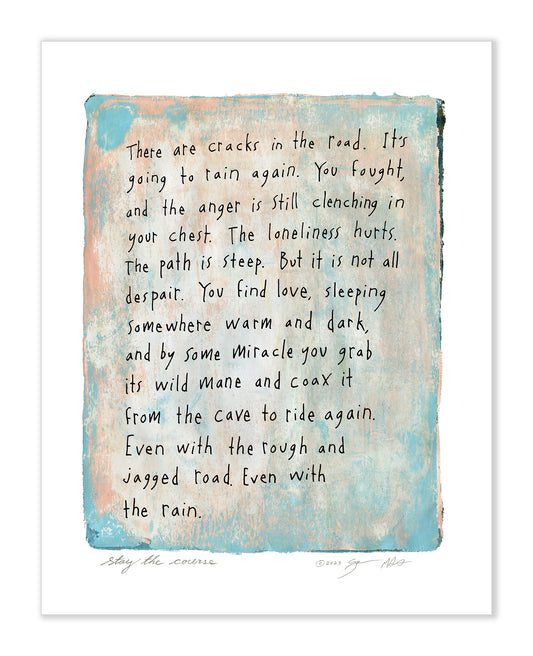 There are cracks in the road. It's
going to rain again. You fought,
and the anger is still clenching in
your chest. The loneliness hurts.
The path is steep. But it is not all
despair. You find love, sleeping
somewhere warm and dark,
and by some miracle you grab
its wild mane and coax it
from the cave to ride again.
Even with the rough and
jagged road. Even with
the rain.
stay the course